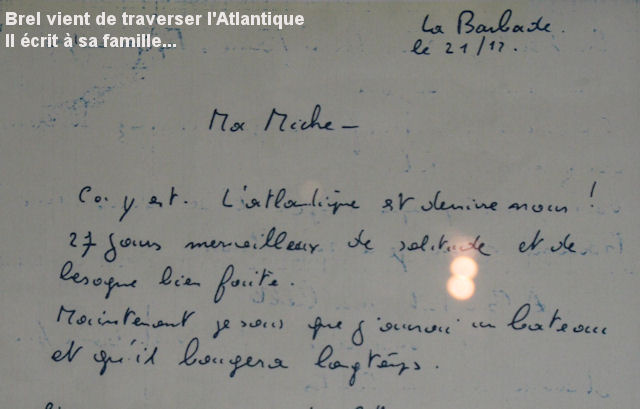 Brel vient de traverser l'Atlantique
Il écrit à sa famille...
La Barbade.
le 21/12.
Ma Miche –
Ca y est. L'atlantique est derrière nous !
27 jours merveilleux de solitude et de
besogne bien faite.
Maintenant je sais que j'aurai un bateau
et qu'il bougera longtemps.